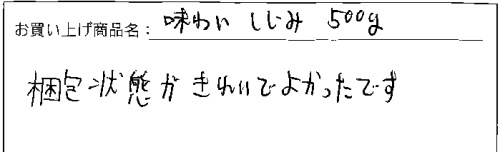 お買い上げ商品名：味わい しじみ 500g
梱包状態がきれいでよかったです